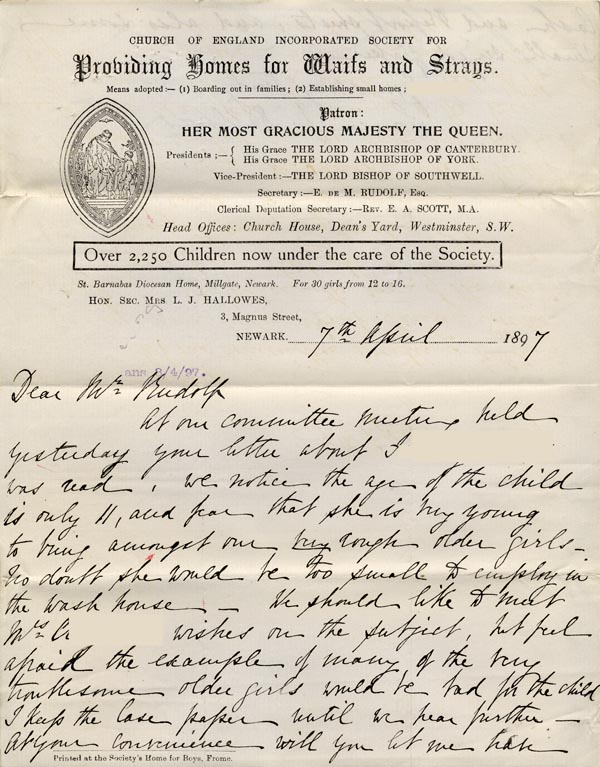 CHURCH OF ENGLAND INCORPORATED SOCIETY FOR
Providing Homes for Waifs and Strays.
Means adopted :— (1) Boarding out in families ; (2) Establishing small homes ;
Patron :
HER MOST GRACIOUS MAJESTY THE QUEEN.
Presidents ;—{ His Grace THE LORD ARCHBISHOP OF CANTERBURY.
His Grace THE LORD ARCHBISHOP OF YORK.
Vice-President :—THE LORD BISHOP OF SOUTHWELL.
Secretary :—E. DE M. RUDOLF, ESQ.
Clerical Deputation Secretary :—REV. E. A. SCOTT, M.A.
Head Offices : Church House, Dean's Yard, Westminster, S.W.
Over 2,250 Children now under the care of the Society.
St. Barnabas Diocesan Home, Millgate, Newark. For 30 girls from 12 to 16.
HON. SEC. MRS L. J. HALLOWES,
3, Magnus Street,
NEWARK. 7th April 1897
ans 8/4/97.
Dear Mr Rudolf
At our committee meeting held
yesterday your letter about I
was read, we notice the age of the child
is only 11, and fear that she is very young
to bring amongst our very rough older girls —
No doubt she would be too small to employ in
the wash house — We should like to meet
Mrs C wishes on the subject, but feel
afraid the example of many of the very
troublesome older girls would be bad for the child
I keep the case paper until we hear further —
At your convenience will you let me have
Printed at the Society's Home for Boys, Frome.